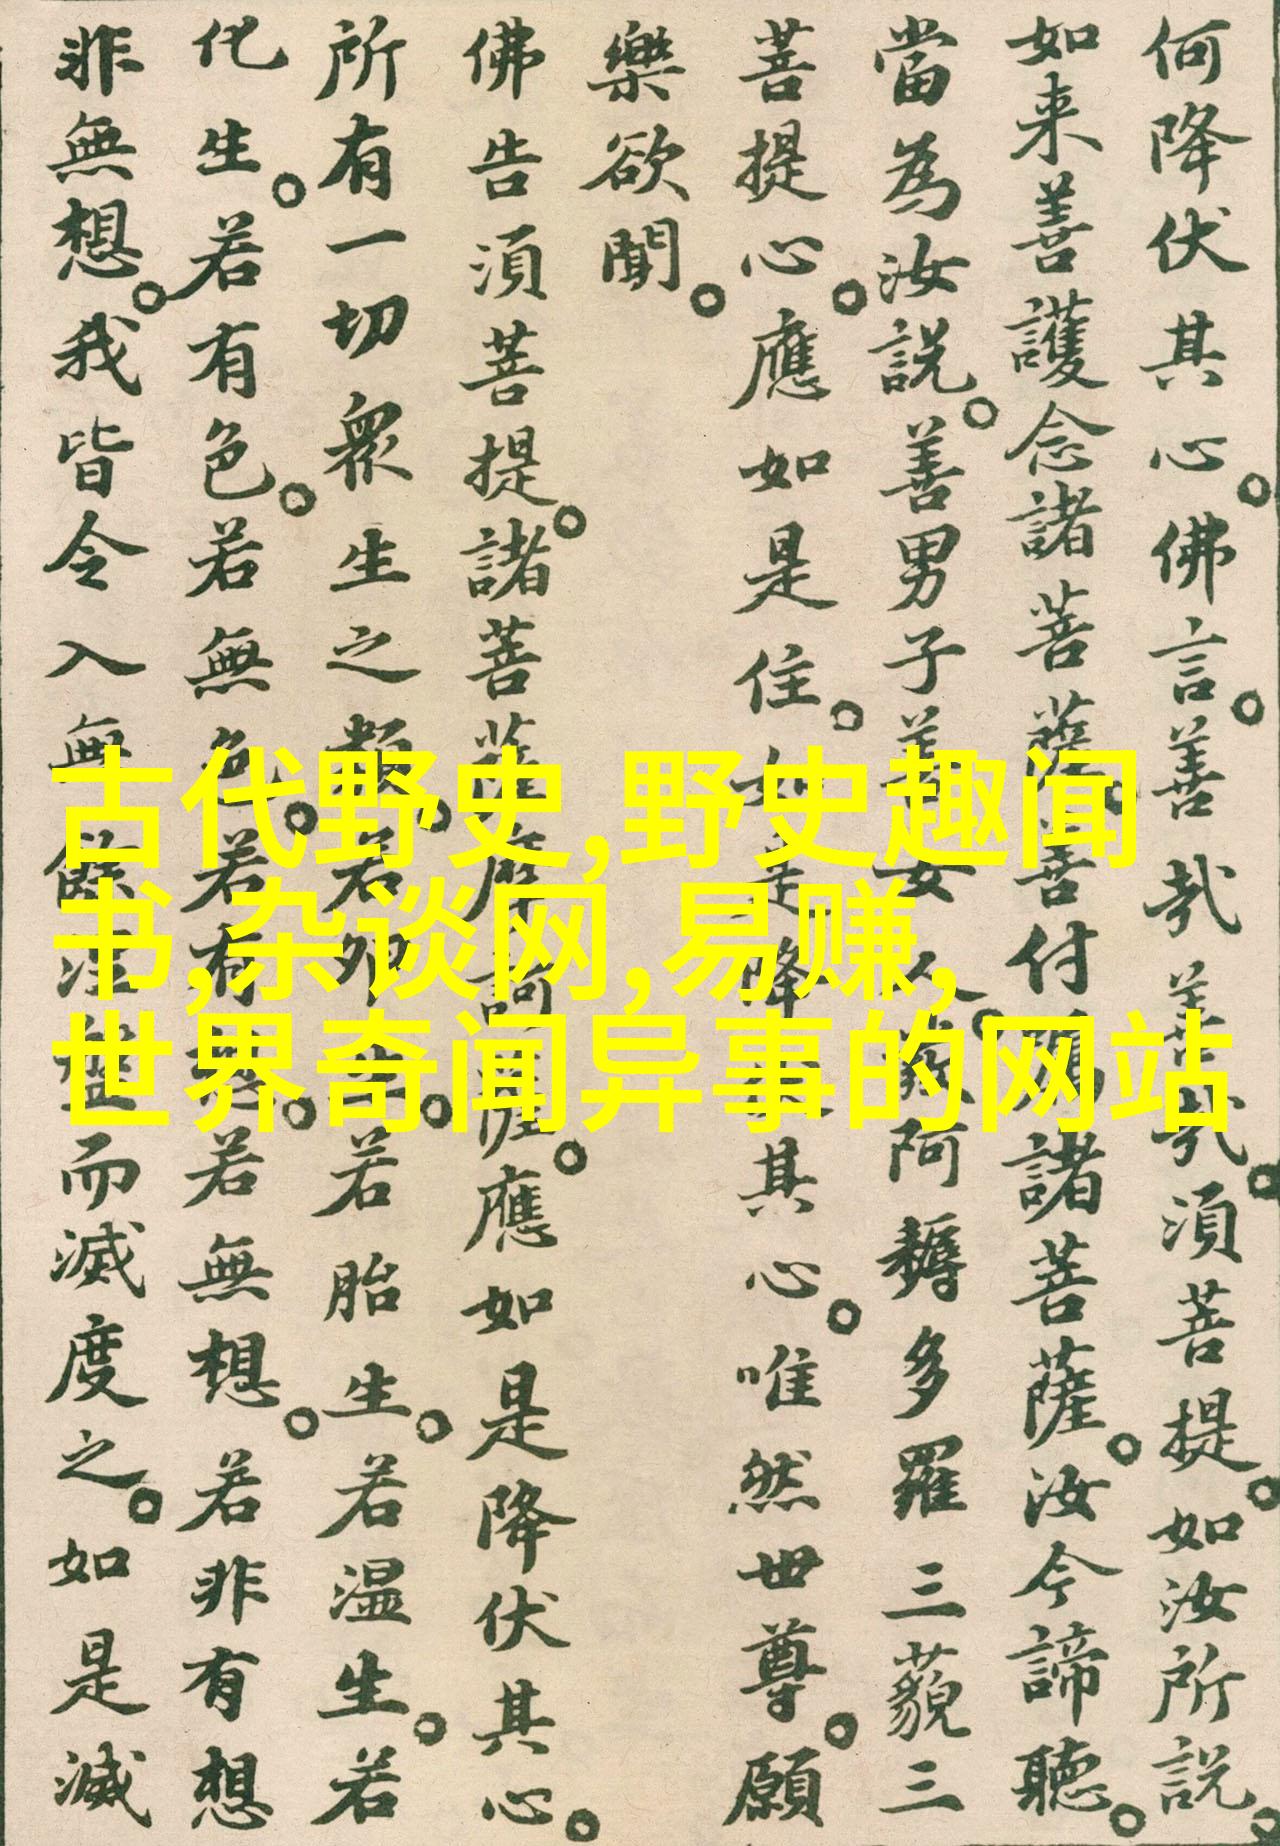 何降伏其心。佛言。善哉善哉。須菩提。如汝所説。
如来善護念諸菩薩。善付囑諸菩薩。汝今諦聽。
當為汝説。善男子善女人。發阿耨多羅三藐三
菩提心。應如是住。如是降伏其心。唯然世尊。願
樂欲聞。
佛告須菩提。諸菩薩摩訶薩。應如是降伏其心。
所有一切衆生之類。若卵生。若胎生。若温生。若
化生。若有色。若無色。若有想。若無想。若非有想
非無想。我皆令入無餘涅盤而滅度之。如是滅
古代野史,野史趣闻
书,杂谈网,易赚,
世界奇闻异事的网站